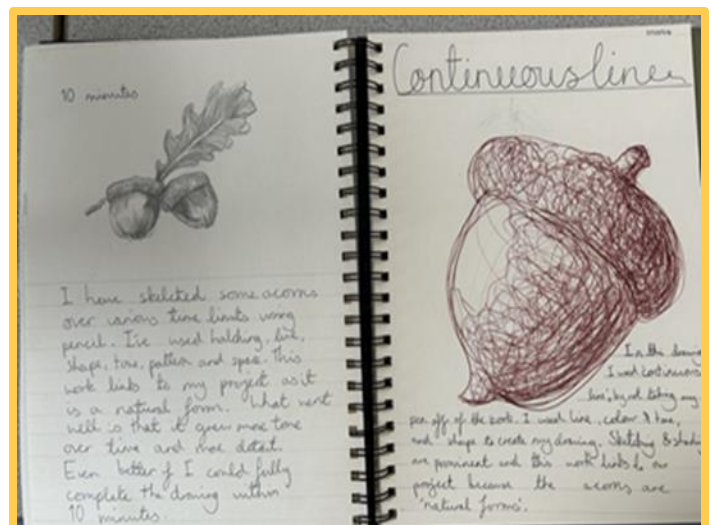 10 minutes
I have sketched some acorns
over various time limits using
pencil. I've used hatching, line,
shape, tone, pattern and space. This
work links to my project as it
is a natural form. What went
well is that it grew more tone
over time and more detail.
Even better if I could fully
complete the drawing within
10 minutes.
Continuous line
In this drawing
I used continuous
line, by not taking my
pen off of the work. I used line, colour & tone,
and shape to create my drawing. Sketching & shading
are prominent and this work links to our
project because the acorns are
'natural forms'.